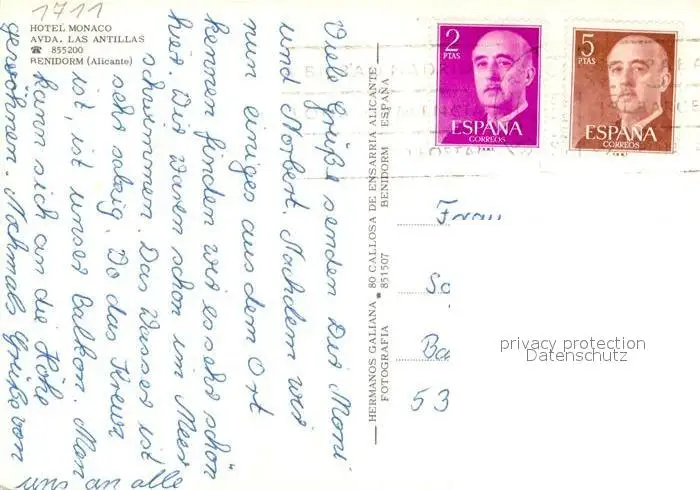 1711
HOTEL MONACO
AVDA. LAS ANTILLAS
☎ 855200
BENIDORM (Alicante)
Viele Grüße senden Dir Moni
und Norbert. Nachdem wir
nun einiges aus dem Ort
kennen finden wir es sehr schön
hier. Wir waren schon im Meer
schwimmen. Das Wasser ist
sehr salzig. Wo das Kreuz
ist, ist unser Balkon. Man
kann sich an die Höhe
gewöhnen. Nochmals Grüße von
uns an alle
HERMANOS GALIANA ● 80 CALLOSA DE ENSARRIA ALICANTE
FOTOGRAFIA 851507 BENIDORM ESPAÑA
2
PTAS
ESPAÑA
CORREOS
5
PTAS
ESPAÑA
CORREOS
Frau
So
Ba
53
privacy protection
Datenschutz